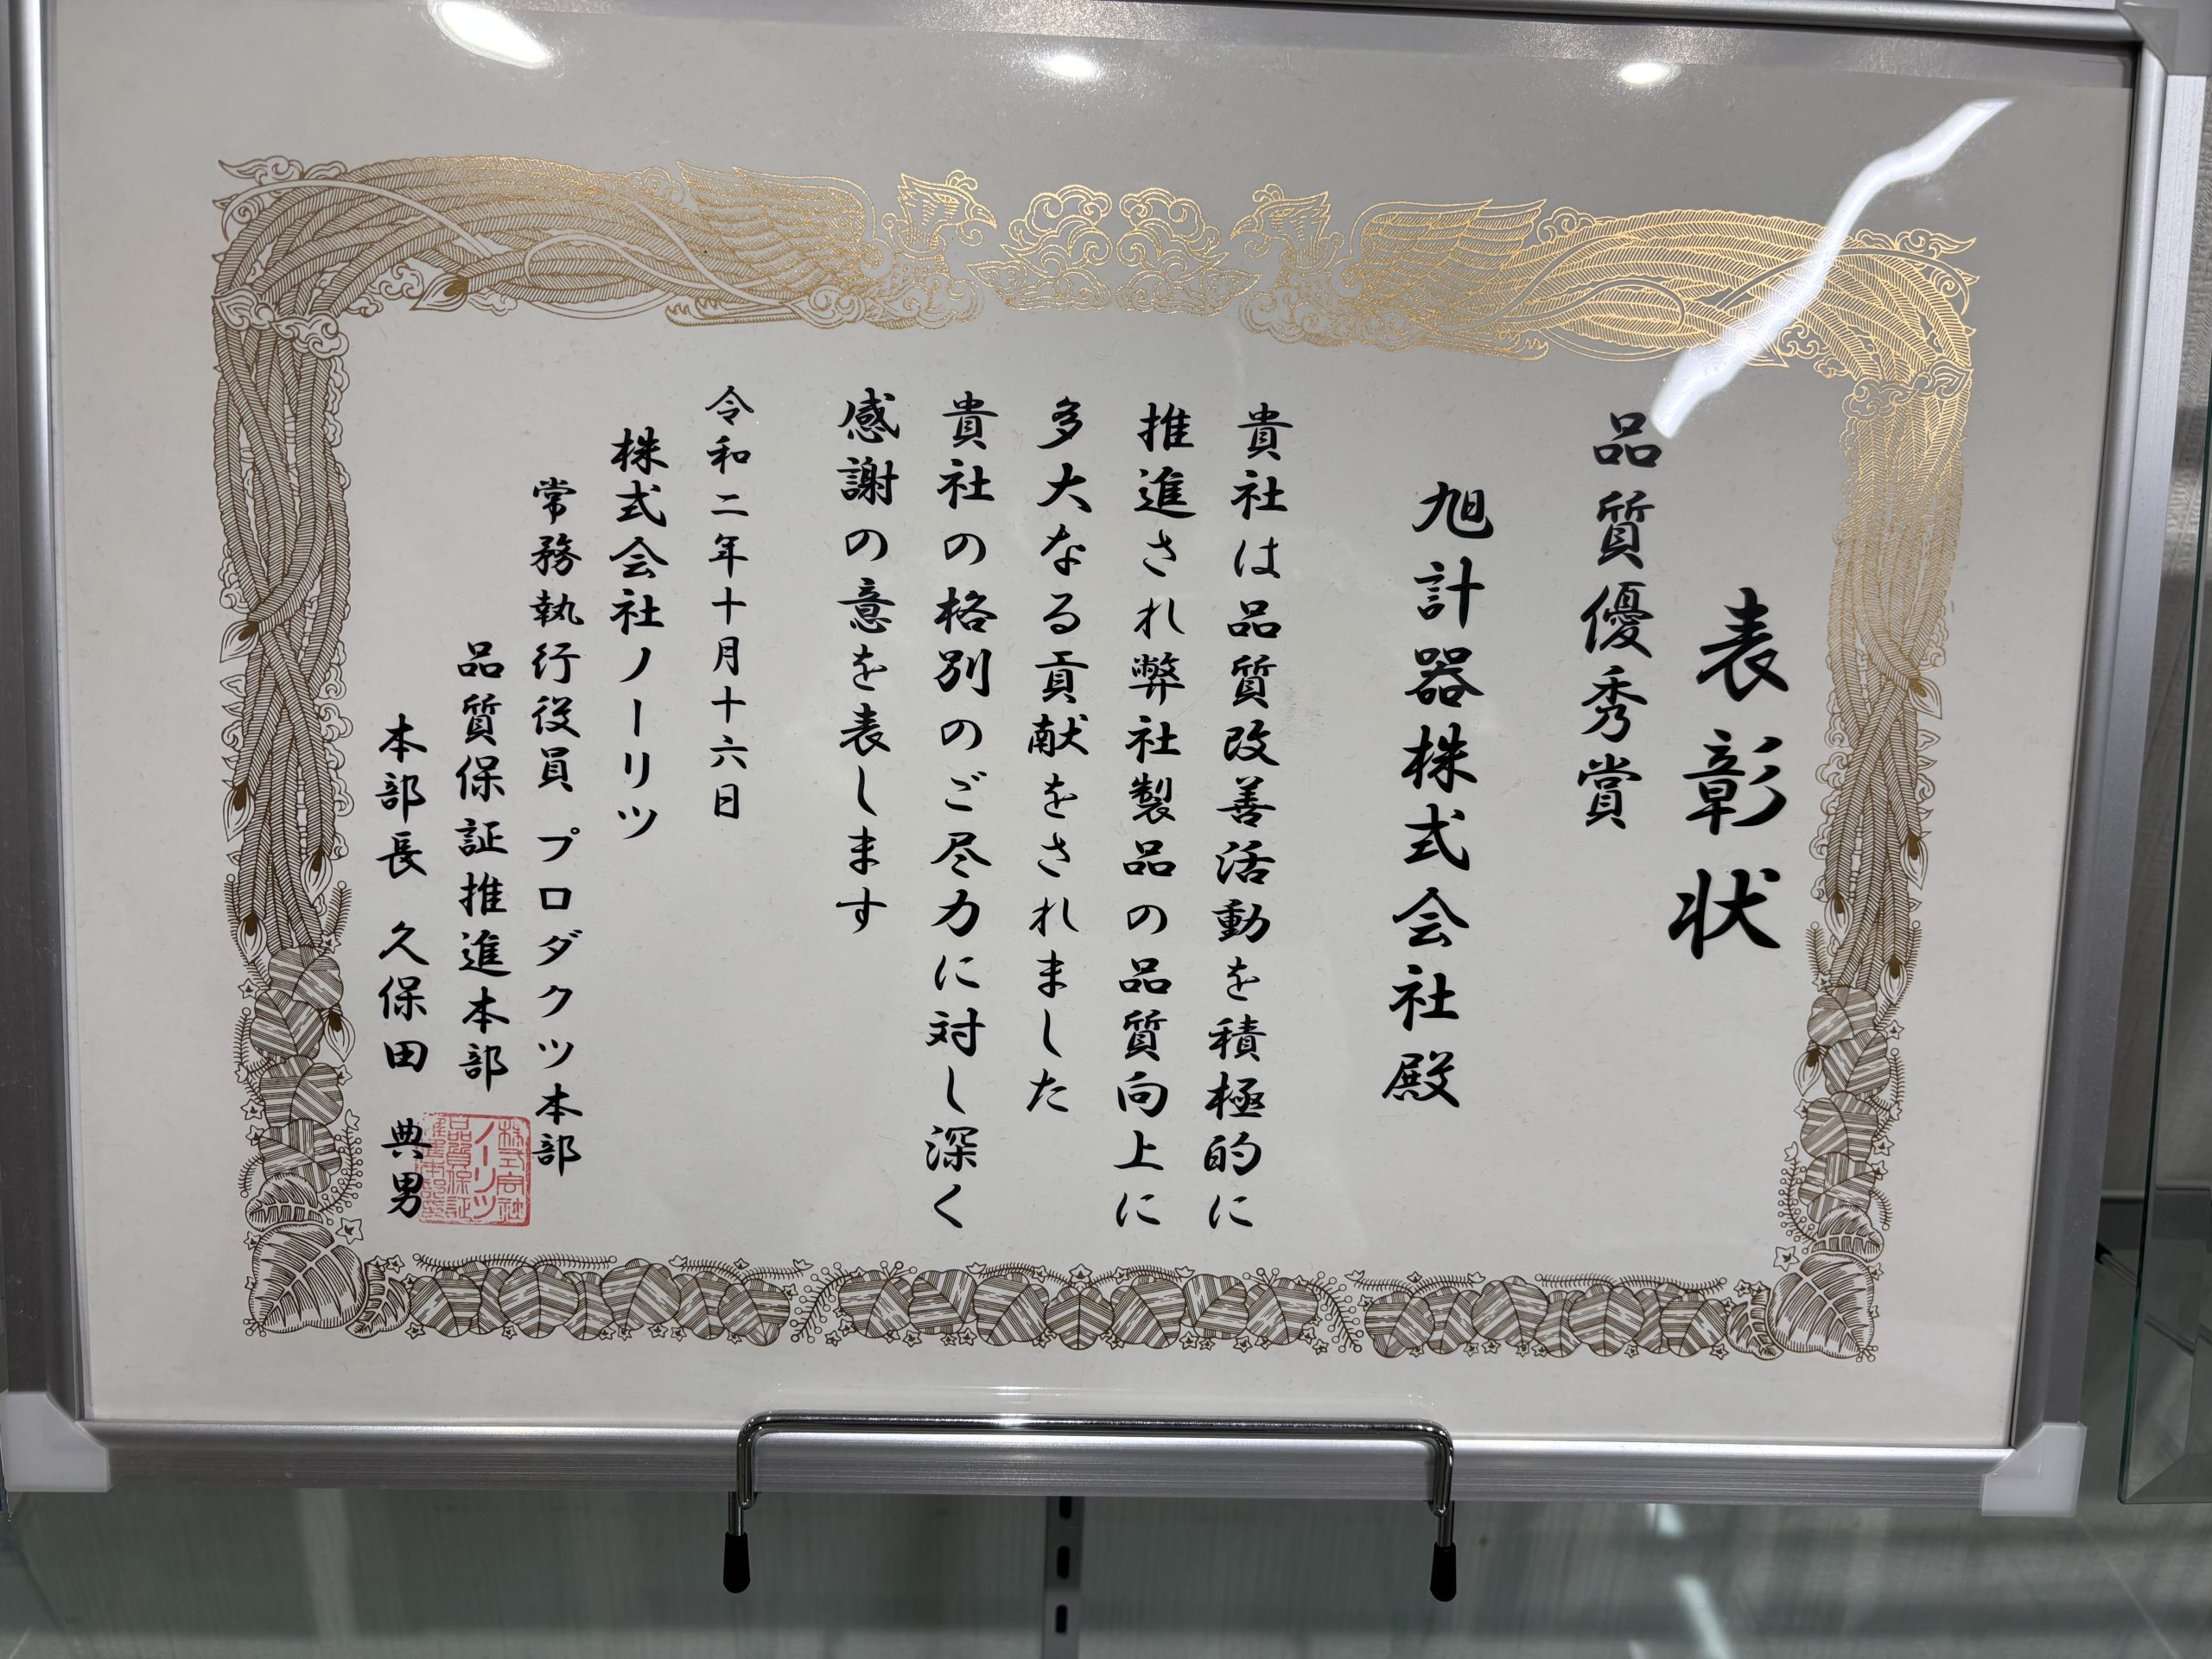 表彰状
品質優秀賞
旭計器株式会社殿
貴社は品質改善活動を積極的に
推進され弊社製品の品質向上に
多大なる貢献をされました
貴社の格別のご尽力に対し深く
感謝の意を表します
令和二年十月十六日
株式会社ノーリツ
常務執行役員 プロダクツ本部
品質保証推進本部
本部長 久保田 典男
株式会社
ノーリツ
品質保証